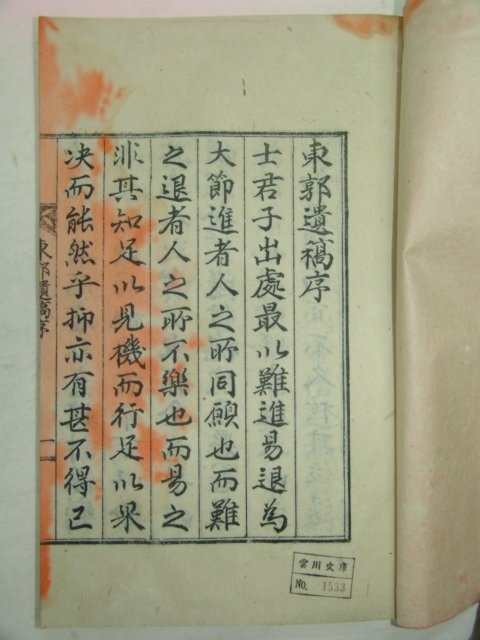 東郭遺稿序
士君子出處最以難進易退為
大節進者人之所同願也而難
之退者人之所不樂也而易之
非其知足以見機而行足以果
決而能然乎抑亦有甚不得已
東郭遺稿序
一
雲川文庫
No. 1533